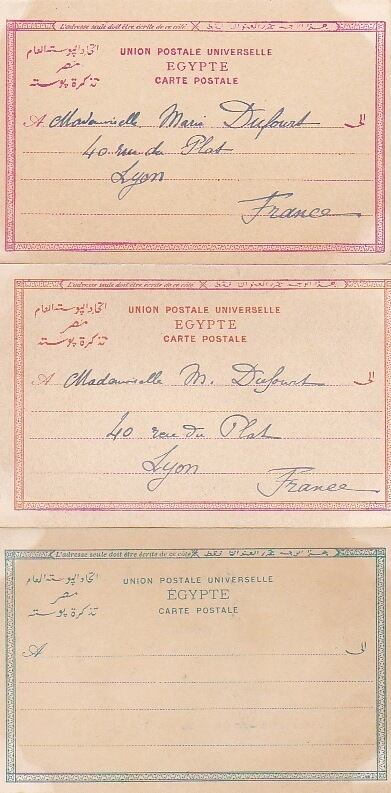 L'adresse seule doit être écrite de ce côté
UNION POSTALE UNIVERSELLE
EGYPTE
CARTE POSTALE
اتحاد البوستة العام
مصر
تذكرة بوستة
A Mademoiselle Marie Dufourt الى
40 rue du Plat
Lyon
France
L'adresse seule doit être écrite de ce côté
UNION POSTALE UNIVERSELLE
EGYPTE
CARTE POSTALE
اتحاد البوستة العام
مصر
تذكرة بوستة
A Mademoiselle M. Dufourt الى
40 rue du Plat
Lyon
France
L'adresse seule doit être écrite de ce côté
UNION POSTALE UNIVERSELLE
ÉGYPTE
CARTE POSTALE
اتحاد البوستة العام
مصر
تذكرة بوستة
A الى